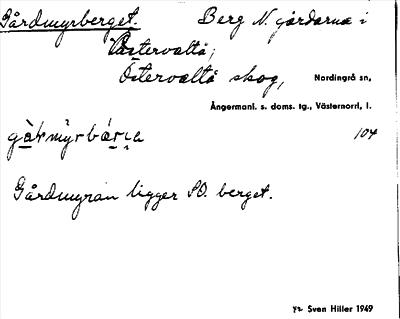 Gårdmyrberget. Berg N. gårdarna i
Västervåltå;
Östervåltå skog, Nordingrå sn,
Ångermanl. s. doms. tg., Västernorrl. l.
104
Gårdmyran ligger SO. berget.
Sven Hiller 1949